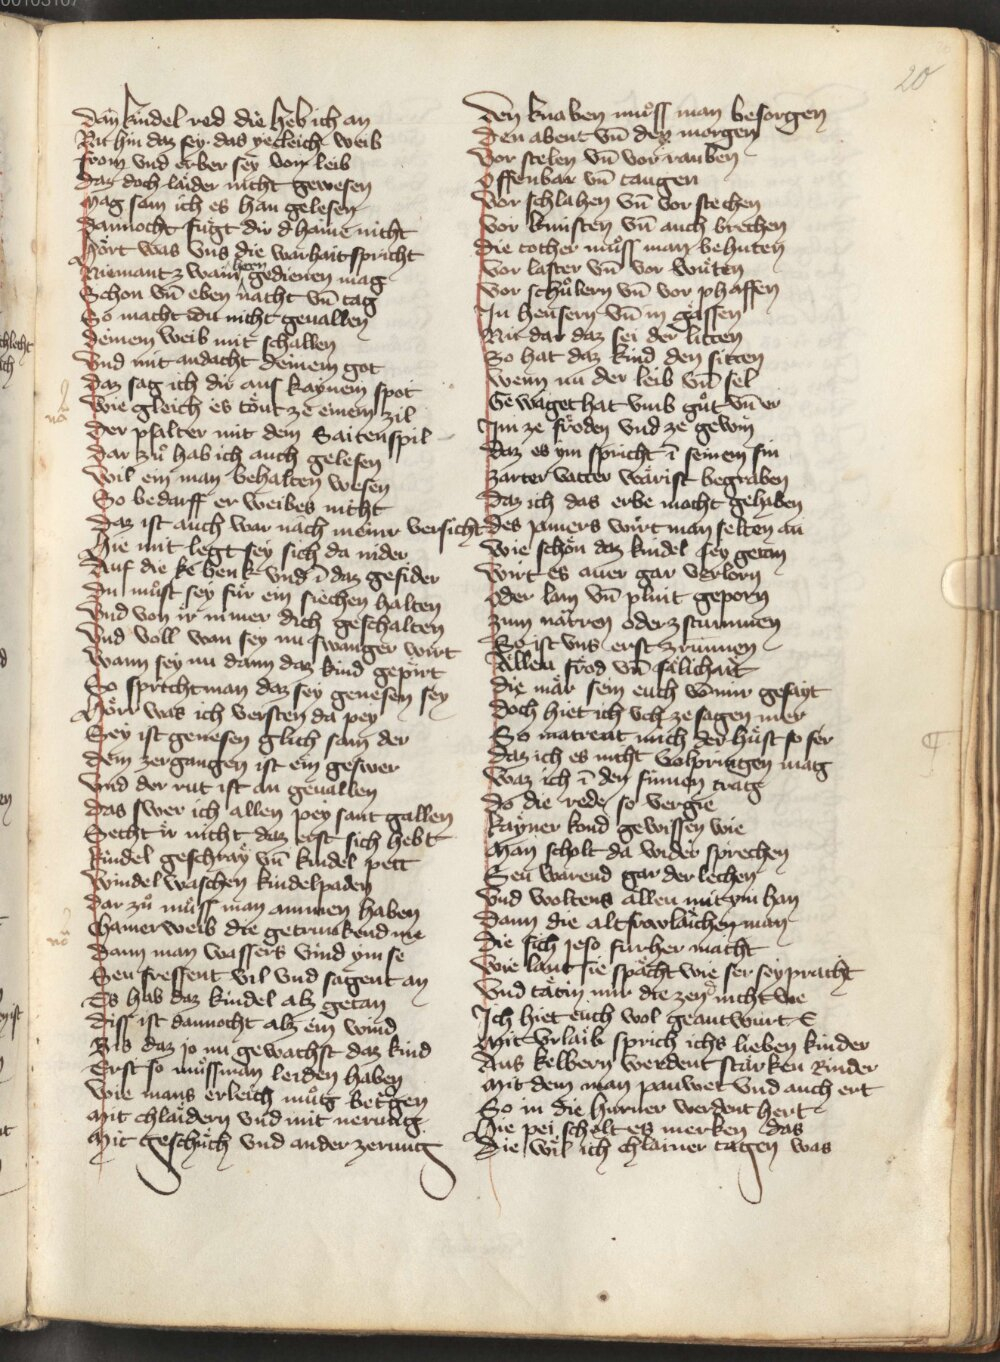 20
Dein kindel red die heb ich an
Nu hin daz sey das yecleich weib
From vnd erber sey von leib
Daz doch laider nicht gewesen
Mag sam ich es han gelesen
Dannocht fügt dir d haine nicht
Hört was vns die warhait spricht
Niemant z wain herren gedienen mag
Schon vn̄ eben nacht vn̄ tag
So macht du nicht geuallen
Deinem weib mit schallen
Vnd mit andacht deinem got
Daz sag ich dir aus kaynem spot
Wie gleich es tönt ze einem zil
Der psalter mit dem Saitenspil
Dar zů hab ich auch gelesen
Wil ein man behalten wesen
So bedarff er weibes nicht
Daz ist auch war nach meinr versicht
Hie mit legt sey sich da nider
Auf die ke benk vnd ī daz gefider
Du můst sey für ein siechen halten
Vnd von ir nimer dich geschalten
Vnd voll wan sey nu swanger wirt
Wann sey nu dann daz kind gepirt
So spricht man daz sey genesen sey
Hörr was ich versten da pey
Sey ist genesen glich sam der
Dem zergangen ist ein geswer
Vnd der rut ist an geuallen
Das swer ich allen pey sant gallen
Secht ir nicht daz erst sich hebt
Kindel geschray vn̄ kindel pett
Windel waschen kindelpaden
Dar zů můss man ammen haben
Chamerweib die getrinkend me
Dann man wassers vind ym se
Seu fressent vil vnd sagent an
Es hab daz kindel alz getan
Diss ist dannocht alz ein wind
Bis daz jo nu gewachst daz kind
Erst so můssman leiden haben
Wie mans erleich můg betrgen
Mit chlaidern vnd mit nerung
Mit geschüch vnd ander zerung
Den knaben můss man besorgen
Den abent vn̄ den morgen
Vor stelen vn̄ vor rauben
Offenbar vn̄ taugen
Vor schlahen vn̄ vor stechen
Vor kunsten vn̄ auch brechen
Die tother můss man behuten
Vor laster vn̄ vor wüten
Vor schůlern vn̄ vor phaffen
In heusern vn̄ in gassen
Nu dar daz sei der litten
So hat daz kind den sitten
Wenn nu der leib vn̄ sel
Gewaget hat vmb gůt vn̄ er
Im ze fröden vnd ze gewin
Daz es ym spricht ī seinem sin
Zarter vatter wärist begraben
Daz ich das erbe mocht gehaben
Des jamers wirt man selten an
Wie schön daz kindel sey getan
Wirt es auer gar verlorn
Oder lam vn̄ plint geporn
Zum narren oder z stummen
So ist vns erst zrunnen
Allen fröd vn̄ sälichait
Die mär sein euch vō mir gesayt
Doch hiet ich vch ze sagen mer
So matreat mich der hůst so ser
Daz ich es nicht volpringen mag
Waz ich ī den sinnen trag
Do die rede so vergie
Kayner kond gewissen wie
Man scholt da wider sprechen
Seu warend gar der lechen
Vnd woltens allen mit ym han
Dann die alt frowlaichen man
Die sich jeso fürher macht
Wie laut sie spächt wie ser sey pracht
Vnd tätin mir die zend nicht we
Ich hiet euch wol geantwurt E
Mit vrlaib sprich ichs lieben kinder
Aus kelbern werdent starken Rinder
Mit dem man pauwet vnd auch ert
So in die hurner werdent hert
Hie pei schült es merken das
Die wil ich chlainer tagen was